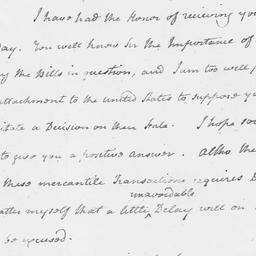 I have had the Honor of recieving you
day. You well know Sir the Importance of
the Bills in question, and I am too well
attachment to the united States to suppose yo
itate a Decision on their Fate. I hope soo
to give you a positive answer. Altho the
these mercantile Transactions requires D
unavoidable
atter myself that a little Delay will on
be excused.